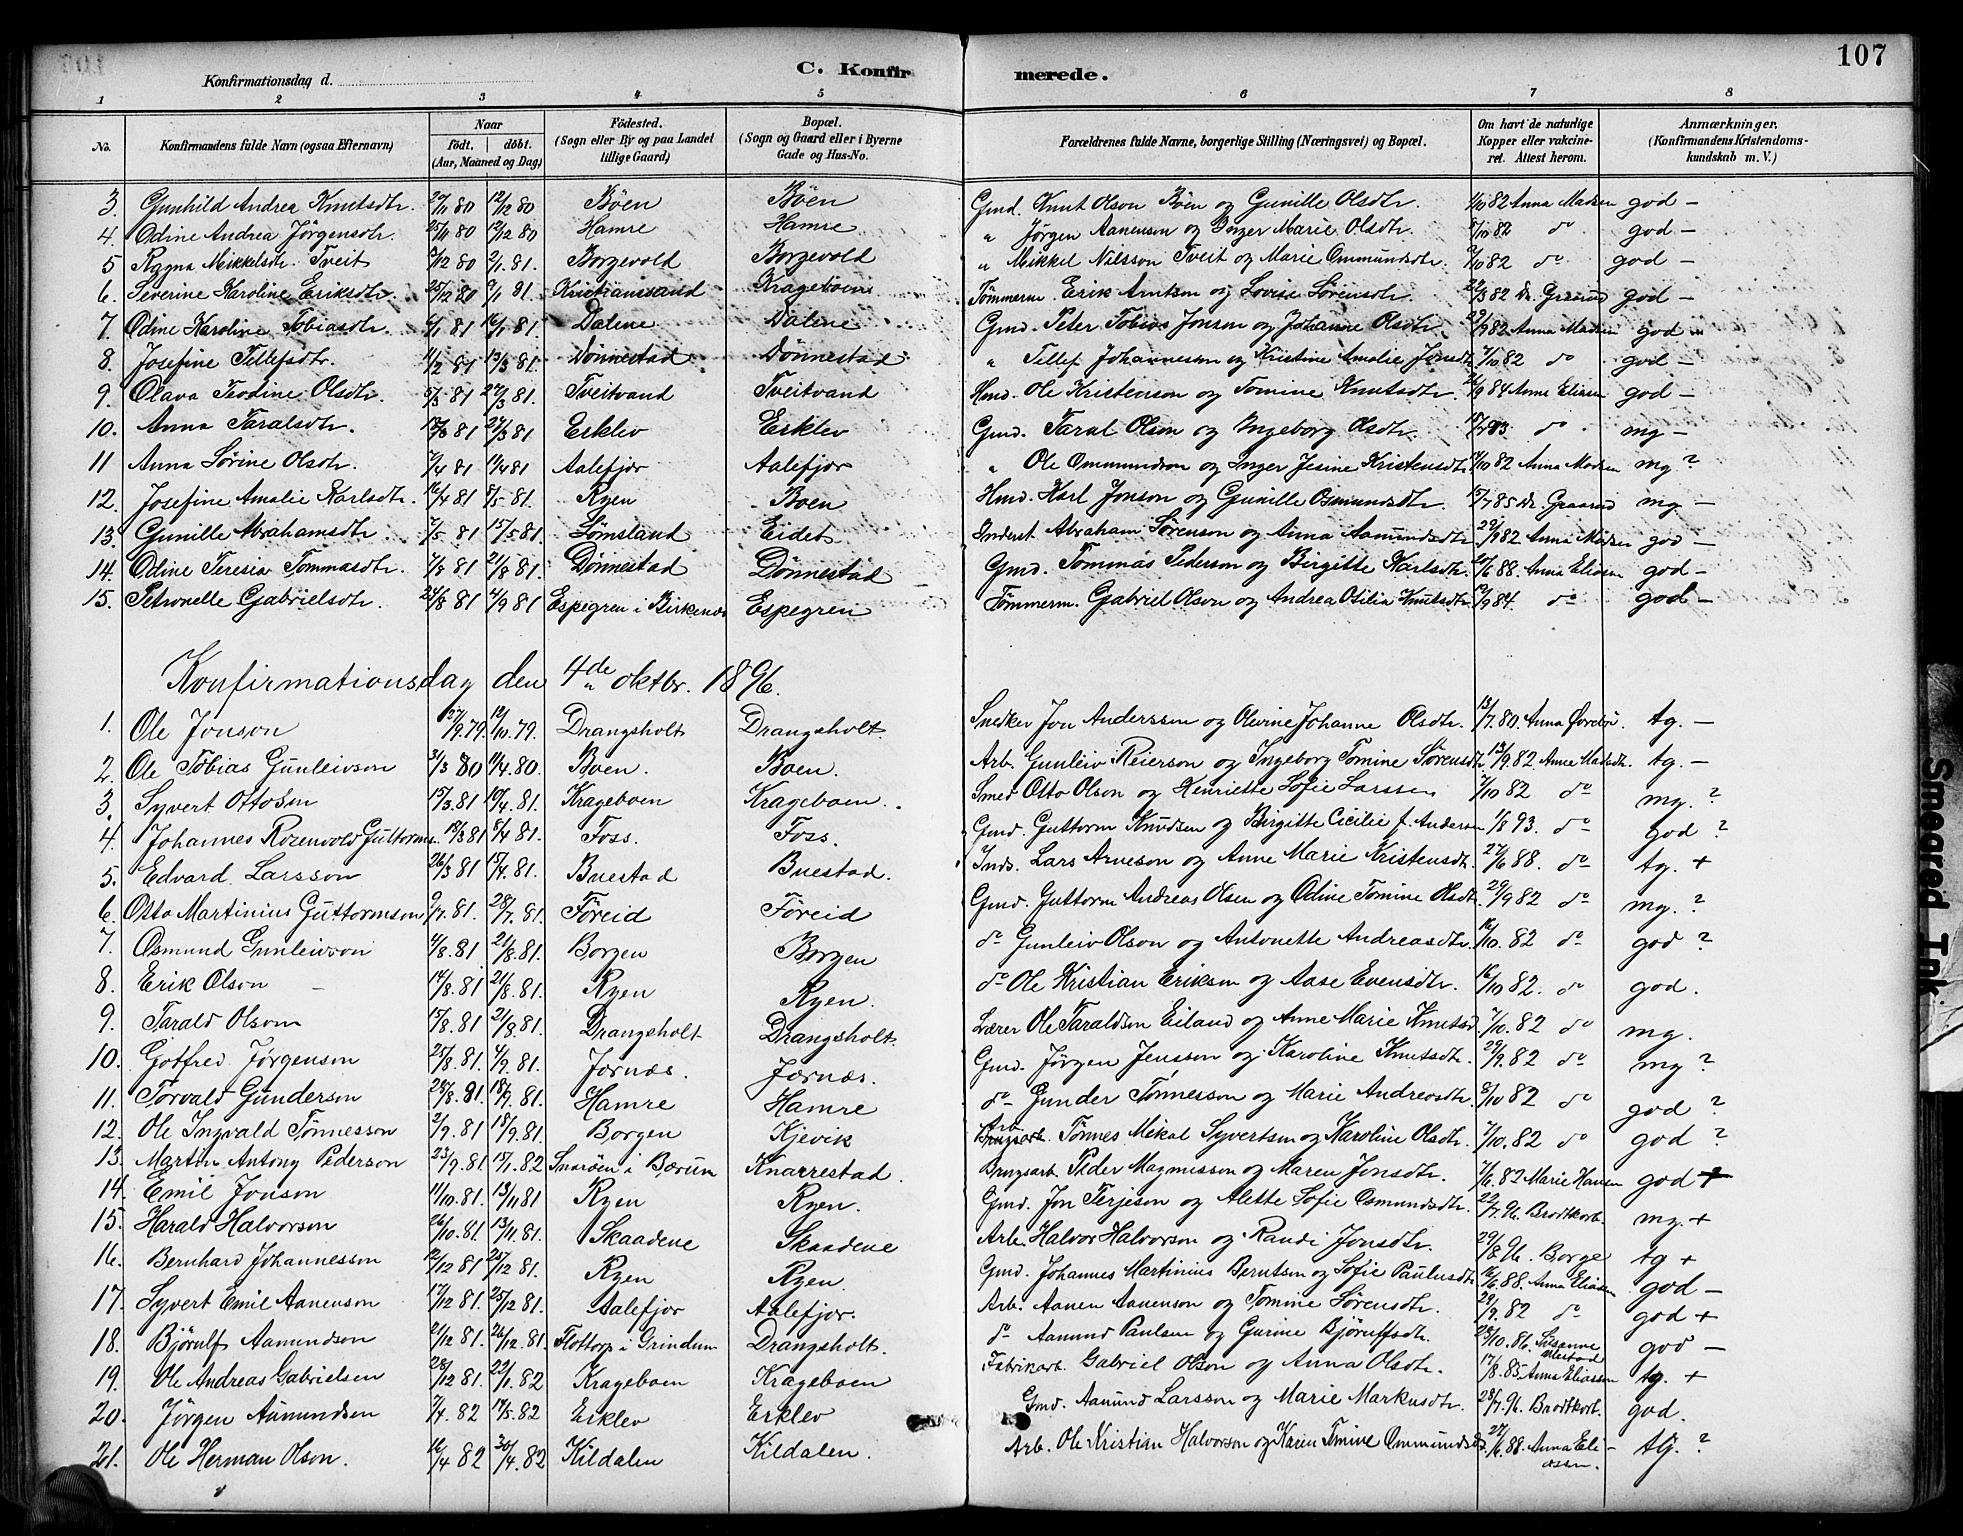 107
Konfirmationsdag d.
C. Konfirmerede.
1 2 3 4 5 6 7 8
No. Konfirmandens fulde Navn (ogsaa Efternavn) Naar født. døbt. (Aar, Maaned og Dag) Fødested. (Sogn eller By og paa Landet tillige Gaard) Bopæl. (Sogn og Gaard eller i Byerne Gade og Hus-No. Forældrenes fulde Navne, borgerlige Stilling (Næringsvei) og Bopæl. Om havt de naturlige Kopper eller vakcineret. Attest herom. Anmærkninger. (Konfirmandens Kristendomskundskab m. V.)
3. Gunhild Andrea Knutsdtr. 27/11 80 12/12 80 Bøen Bøen Gmd. Knut Olson Bøen og Gunille Olsdtr. 1/10 82 Anna Madsen god –
4 Odine Andrea Jørgensdtr. 25/11 80 12/12 80 Hamre Hamre " Jørgen Aanenson og Inger Marie Olsdtr. 8/10 82 do god –
5 Ragna Mikkelsdtr. Tveit 2/12 80 2/1 81. Borgevold Borgevold " Mikkel Nilsson Tveit og Marie Ommundsdtr. 2/10 82 do god –
6. Severine Karoline Eriksdtr. 25/12 80 9/1 81. Kristianssand Krageboen Tømmerm Erik Arntson og Lovise Sørensdtr. 22/3 82 Dr. Graarud god –
7. Odine Karoline Tobiasdtr. 6/1 81 16/1 81. Dalene Dalene Gmd. Peter Tobias Jonson og Johanne Olsdtr. 29/9 82 Anna Madsen god –
8. Josefine Tellefsdtr. 11/2 81 13/3 81. Dønnestad Dønnestad " Tellef Johannesson og Kristine Amalie Jonsdtr 7/10 82 do god –
9. Olava Teodine Olsdtr. 5/3 81 27/3 81. Tveitvand Tveitvand Hmd. Ole Kristenson og Tomine Knutsdtr. 2/9 84 Anna Eliasen god –
10. Anna Taralsdtr. 18/3 81 27/3 81 Erklev Erklev Gmd. Taral Olson og Ingeborg Olsdtr. do mg –
11 Anna Sørine Olsdtr. 2/4 81 11/4 81 Aalefjær Aalefjær " Ole Ommundson og Inger Jesine Kristensdtr. 11/10 82 Anna Madsen mg ?
12. Josefine Amalie Karlsdtr. 16/4 81 8/5 81. Ryen Boen Hmd. Karl Jonson og Gunille Osmundsdtr. 15/7 85 Dr. Graarud mg –
13. Gunille Abrahamsdtr. 7/5 81 15/5 81 Lømsland Eidet Inderst Abraham Sørenson og Anna Aamundsdtr 29/9 82 Anna Madsen god –
14. Odine Teresia Tommasdtr. 7/8 81 21/8 81. Dønnestad Dønnestad Gmd. Tommas Pederson og Birgitte Karlsdtr. 20/6 88. Anna Eliasen god –
15. Petronelle Gabrielsdtr. 24/8 81 4/9 81 Espegren i Birkenæs Espegren Tømmerm. Gabriel Olson og Andrea Otilia Knutsdtr. 12/9 84. do god –
Konfirmationsdag den 4de oktbr. 1896.
1. Ole Jonson 27/9.79. 12/10.79. Drangsholt Drangsholt. Snedker Jon Anderssen og Olevine Johanne Olsdtr. 13/7.80. tg. –
2. Ole Tobias Gunleivson 31/3 80 11/4.80. Boen. Boen. Arb. Gunleiv Reierson og Ingeborg Tomine Sørensdtr. 13/9.82. Anne Madsdtr. tg. –
3. Syvert Ottosen 15/3.81 10/4.81. Krageboen Krageboen. Smed Otto Olson og Henriette Sofie Larssen 7/10 82 do mg. ?
4. Johannes Rosenvold Guttorms. 19/3 81 8/4 81. Foss. Foss. Gmd. Guttorm Knudsen og Birgitte Cicilie f. Anderson 1/8 93. do god ?
5. Edvard Larsson 26/3 81 15/4.81. Buestad Buestad. Inds. Lars Arneson og Anne Marie Kristensdtr. 27/6 88. do tg. +
6. Otto Martinius Guttormson 9/7.81. 28/7.81. Føreid Føreid Gmd. Guttorm Andreas Olsen og Odine Tomine Olsdtr. 29/9 82 do mg. ?
7. Osmund Gunleivson 4/8.81 21/8.81. Borgen Borgen do Gunleiv Olson og Antonette Andreasdtr. 16/10. 82 do god ?
8. Erik Olson 14/8.81 21/8.81. Ryen Ryen. do Ole Kristian Erikson og Aase Evensdtr. 16/10 82. do god.
9. Tarald Olsson 15/8.81. 21/8.81. Drangsholt Drangsholt. Lærer Ole Taraldsen Eiland og Anne Marie Knutsd 7/10. 82 do mg.
10. Gotfred Jørgenson 25/8.81. 4/9.81. Jernæs. Jernæs. Gmd. Jørgen Jensson og Karoline Knutsdtr. 29/9.82 do mg ?
11. Torvald Gunderson 28/8.81. 18/9.81. Hamre Hamre do Gunder Tønnesson og Marie Andreasdtr. 8/10 82 do god ?
12. Ole Ingvald Tønnesson 2/9.81. 18/9.81. Borgen Kjevik Arb. Tønnes Mikal Syvertsen og Karoline Olsdtr. 2/10. 82 do god ?
13. Martin Antony Pederson 23/9.81. 15/1.82 Snarøen i Bærum Knarrestad. Brugsarb. Peder Magnusson og Maren Jonsdtr. 7/6. 82 Marie Hansen god +
14. Emil Jonson 11/10.81. 13/11 81 Ryen Ryen. Gmd. Jon Terjeson og Alette Sofie Osmundsdtr. 22/7.96. Brodtkorb. mg. +
15. Harald Halvorson 26/10.81 13/11.81. Skaadene Skaadene Arb. Halvor Halvorson og Randi Jonsdtr. 29/8.96. Borge tg +
16. Bernhard Johannesson 12/12 81 25/12 81. Ryen Ryen. Gmd. Johannes Martinius Berntsen og Sofie Paulusdtr 16/6.88. Anna Eliasen god –
17. Syvert Emil Aanenson 17/12 81. 25/12 81. Aalefjær Aalefjær. Arb. Aanen Aanenson og Tomine Sørensdtr. 29/9.82 do god +
18. Bjørulf Aamundson 21/12 81. 26/12.81. Flottorp i Grindum Drangsholt. do Aamund Paulsen og Gurine Bjørulfsdtr. 28/10.86. Susanne god –
19. Ole Andreas Gabrielsen 28/12 81. 22/1.82 Krageboen Krageboen Fabrikarb. Gabriel Olson og Anna Olsdtr. 17/8.85 Anna Eliassen tg. +
20. Jørgen Aamundsen 7/4.82 17/5.82 Erklev Erklev Gmd. Aamund Larsson og Marie Markusdtr. 28/7.96. Brodtkorb. god.
21. Ole Herman Olson. 16/4 82 30/4.82 Kildalen Kildalen. Arb. Ole Kristian Halvorson og Karen Tomine Ommundsd. 22/6.88. Anna Eliassen. tg. ?
Smeared Ink